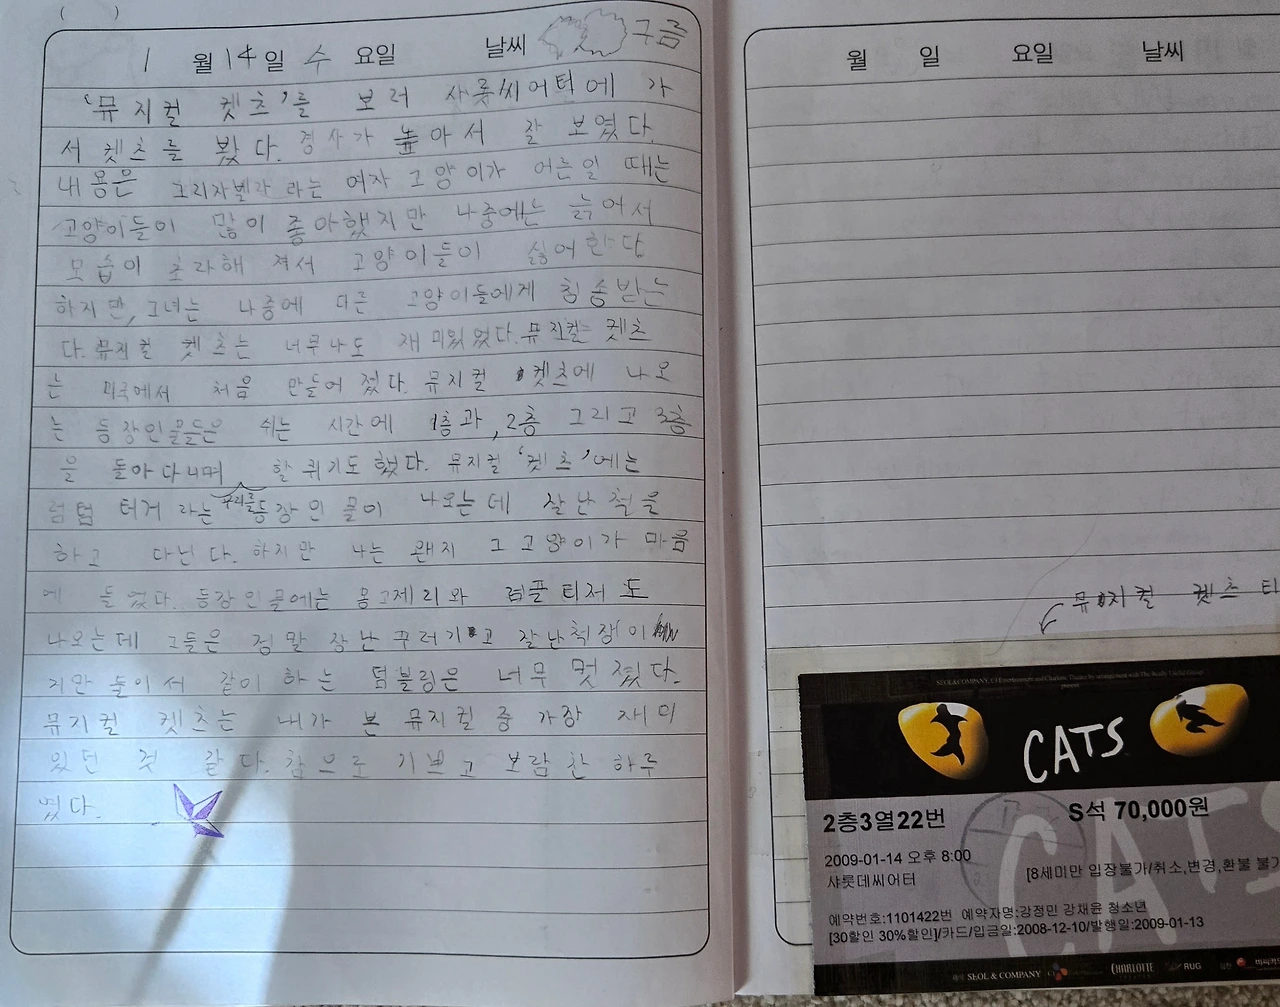 ( )
1 월 14 일 수 요일 날씨 구름
'뮤지컬 켓츠'를 보러 샤롯씨어터에 가
서 켓츠를 봤다. 경사가 높아서 잘 보였다.
내용은 그리자벨라 라는 여자 고양이가 어는일 때는
고양이들이 많이 좋아했지만 나중에는 늙어서
모습이 초라해 져서 고양이들이 싫어한다
하지만, 그녀는 나중에 다른 고양이들에게 칭송받는
다. 뮤지컬 켓츠는 너무나도 재미있었다. 뮤지컬 켓츠
는 미국에서 처음 만들어 졌다. 뮤지컬 켓츠에 나오
는 등장인물들은 쉬는 시간에 1층과, 2층 그리고 3층
을 돌아다니며 할퀴기도 했다. 뮤지컬 '켓츠'에는
럼텀 터거 라는 등장인물이 나오는데 잘난척을
하고 다닌다. 하지만 나는 왠지 그 고양이가 마음
에 들었다. 등장인물에는 몽고제리와 럼플티저도
나오는데 그들은 정말 장난꾸러기고 잘난척장이
지만 둘이서 같이 하는 덤블링은 너무 멋졌다.
뮤지컬 켓츠는 내가 본 뮤지컬 중 가장 재미
있던 것 같다. 참으로 기쁘고 보람찬 하루
였다.
월 일 요일 날씨
뮤지컬 켓츠 티
CATS
2층3열22번 S석 70,000원
2009-01-14 오후 8:00
샤롯데씨어터 [8세미만 입장불가/취소,변경,환불 불가
예약번호:1101422번 예약자명:강정민 강채윤 청소년
[30할인 30%할인]/카드/입금일:2008-12-10/발행일:2009-01-13
SEOL & COMPANY CJ CHARLOTTE RUG